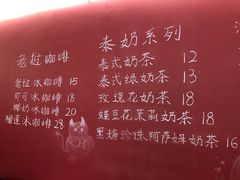 老挝咖啡
老挝冰咖啡 15
可可冰咖啡 18
椰奶冰咖啡 20
榴莲冰咖啡 28
泰奶系列
泰式奶茶 12
泰式绿奶茶 13
玫瑰花奶茶 18
蝶豆花茉莉奶茶 18
黑糖珍珠阿萨姆奶茶 16